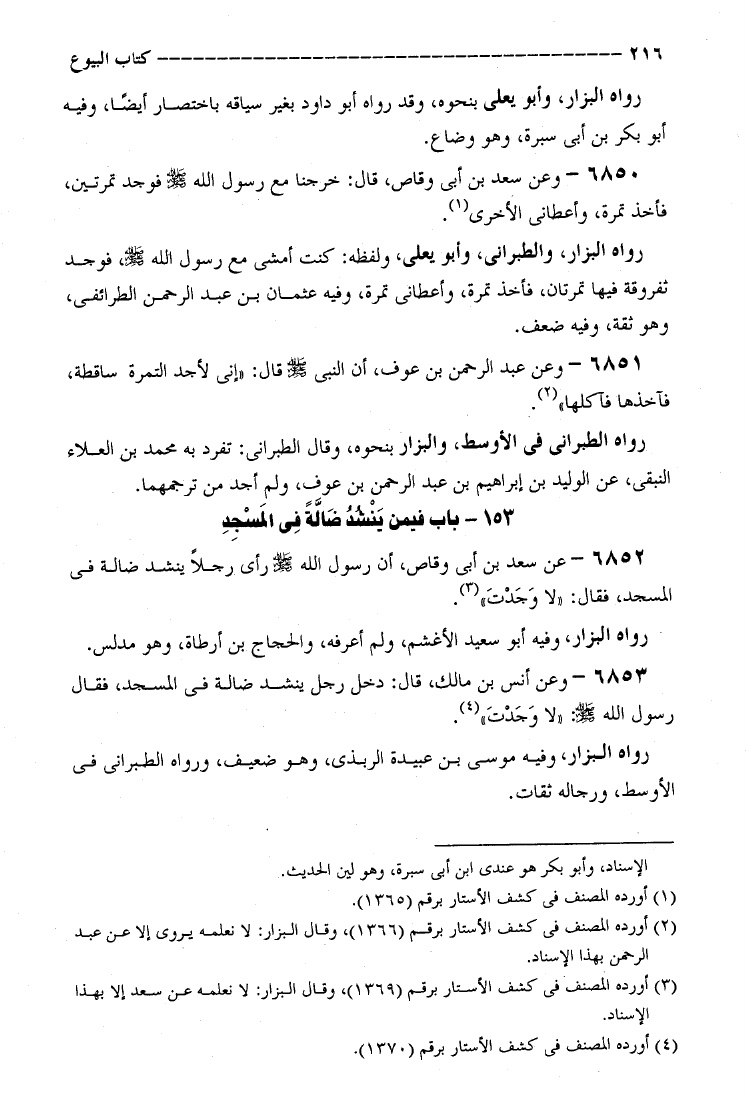 ٢١٦ ------------------------------------------ كتاب البيوع
رواه البزار، وأبو يعلى بنحوه، وقد رواه أبو داود بغير سياقه باختصار أيضًا، وفيه
أبو بكر بن أبى سبرة، وهو وضاع.
٦٨٥٠ – وعن سعد بن أبى وقاص، قال: خرجنا مع رسول الله ﷺ فوجد تمرتين،
فأخذ تمرة، وأعطانى الأخرى(١).
رواه البزار، والطبرانى، وأبو يعلى، ولفظه: كنت أمشى مع رسول الله ﷺ، فوجد
ثفروقة فيها تمرتان، فأخذ تمرة، وأعطانى تمرة، وفيه عثمان بن عبد الرحمن الطرائفى،
وهو ثقة، وفيه ضعف.
٦٨٥١ – وعن عبد الرحمن بن عوف، أن النبى ﷺ قال: «إنى لأجد التمرة ساقطة،
فآخذها فآكلها»(٢).
رواه الطبرانى فى الأوسط، والبزار بنحوه، وقال الطبرانى: تفرد به محمد بن العلاء
النبقى، عن الوليد بن إبراهيم بن عبد الرحمن بن عوف، ولم أجد من ترجمهما.
١٥٣ – باب فيمن يَنْشُدُ ضَالَّةً فِى المَسْجِدِ
٦٨٥٢ – عن سعد بن أبى وقاص، أن رسول الله ﷺ رأى رجلاً ينشد ضالة فى
المسجد، فقال: «لا وَجَدْتَ»(٣).
رواه البزار، وفيه أبو سعيد الأغشم، ولم أعرفه، والحجاج بن أرطاة، وهو مدلس.
٦٨٥٣ – وعن أنس بن مالك، قال: دخل رجل ينشد ضالة فى المسجد، فقال
رسول الله ﷺ: «لا وَجَدْتَ»(٤).
رواه البزار، وفيه موسى بن عبيدة الربذى، وهو ضعيف، ورواه الطبرانى فى
الأوسط، ورجاله ثقات.
الإسناد، وأبو بكر هو عندى ابن أبى سبرة، وهو لين الحديث.
(١) أورده المصنف فى كشف الأستار برقم (١٣٦٥).
(٢) أورده المصنف فى كشف الأستار برقم (١٣٦٦)، وقال البزار: لا نعلمه يروى إلا عن عبد
الرحمن بهذا الإسناد.
(٣) أورده المصنف فى كشف الأستار برقم (١٣٦٩)، وقال البزار: لا نعلمه عن سعد إلا بهذا
الإسناد.
(٤) أورده المصنف فى كشف الأستار برقم (١٣٧٠).